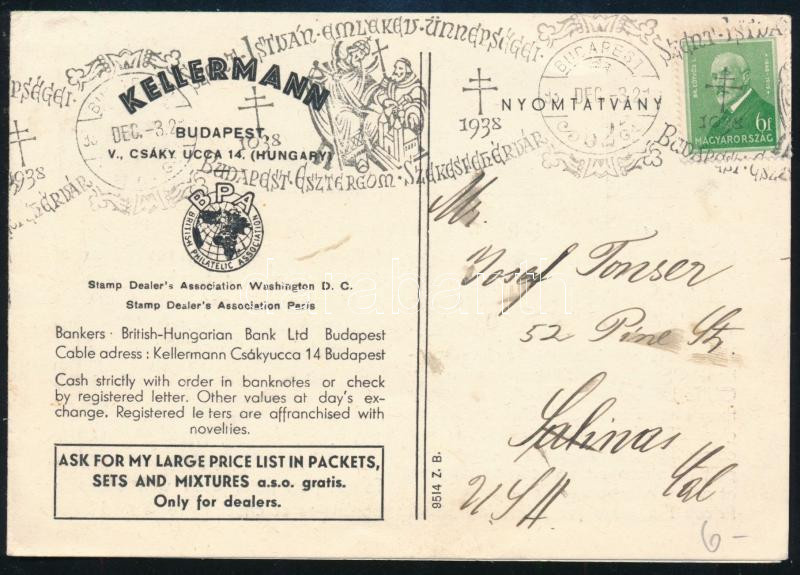 SZENT ISTVÁN · EMLÉKÉV · ÜNNEPSÉGEI ·
KELLERMANN
BUDAPEST,
V., CSÁKY UCCA 14. (HUNGARY)
1938
BUDAPEST · ESZTERGOM · SZÉKESFEHÉRVÁR
DEC. -3. 2
1938
BUDAPEST
DEC. -3. 2
NYOMTATVÁNY
1938
6f
MAGYARORSZÁG
BPA
BRITISH PHILATELIC ASSOCIATION
Stamp Dealer's Association Washington D. C.
Stamp Dealer's Association Paris
Bankers · British-Hungarian Bank Ltd Budapest
Cable adress : Kellermann Csákyucca 14 Budapest
Cash strictly with order in banknotes or check
by registered letter. Other values at day's ex-
change. Registered le ters are affranchised with
novelties.
ASK FOR MY LARGE PRICE LIST IN PACKETS,
SETS AND MIXTURES a.s.o. gratis.
Only for dealers.
9514 Z. B.
M.
Josef Tonser
52 Pine Str.
Salinas
Cal
USA
6-
darabanth